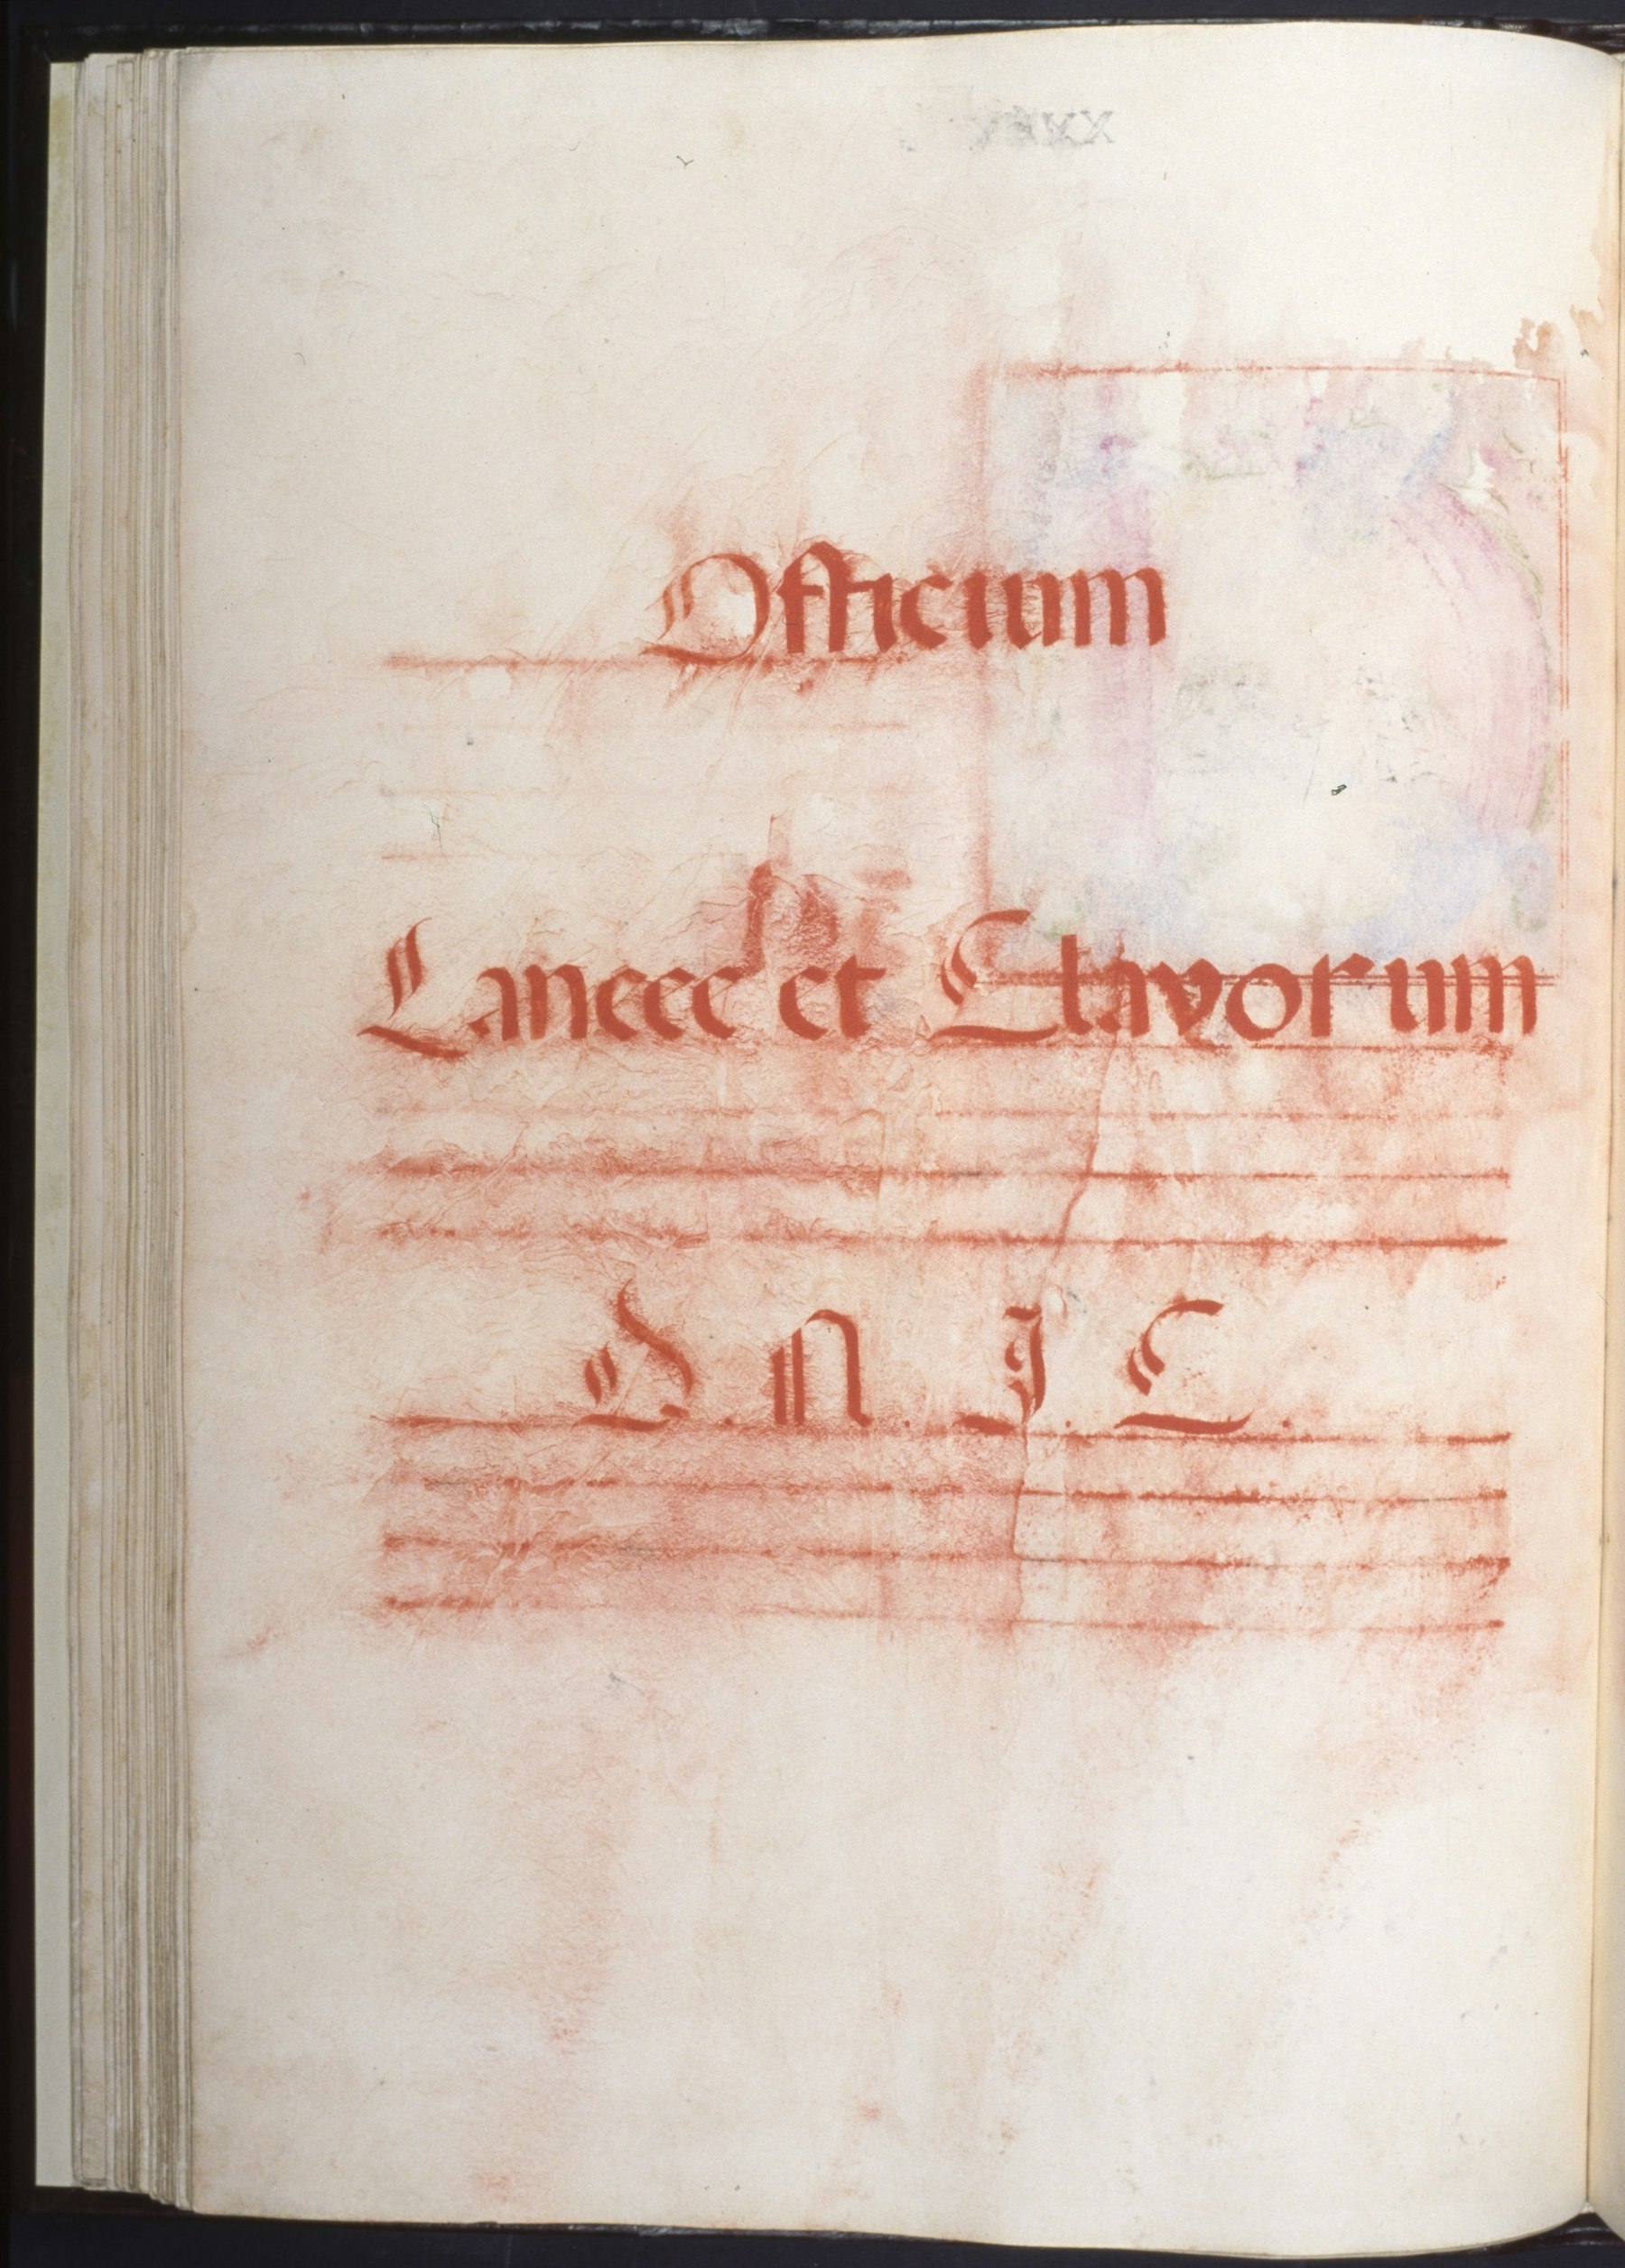 Officium
Lanceae et Clavorum
D. N. J. C.